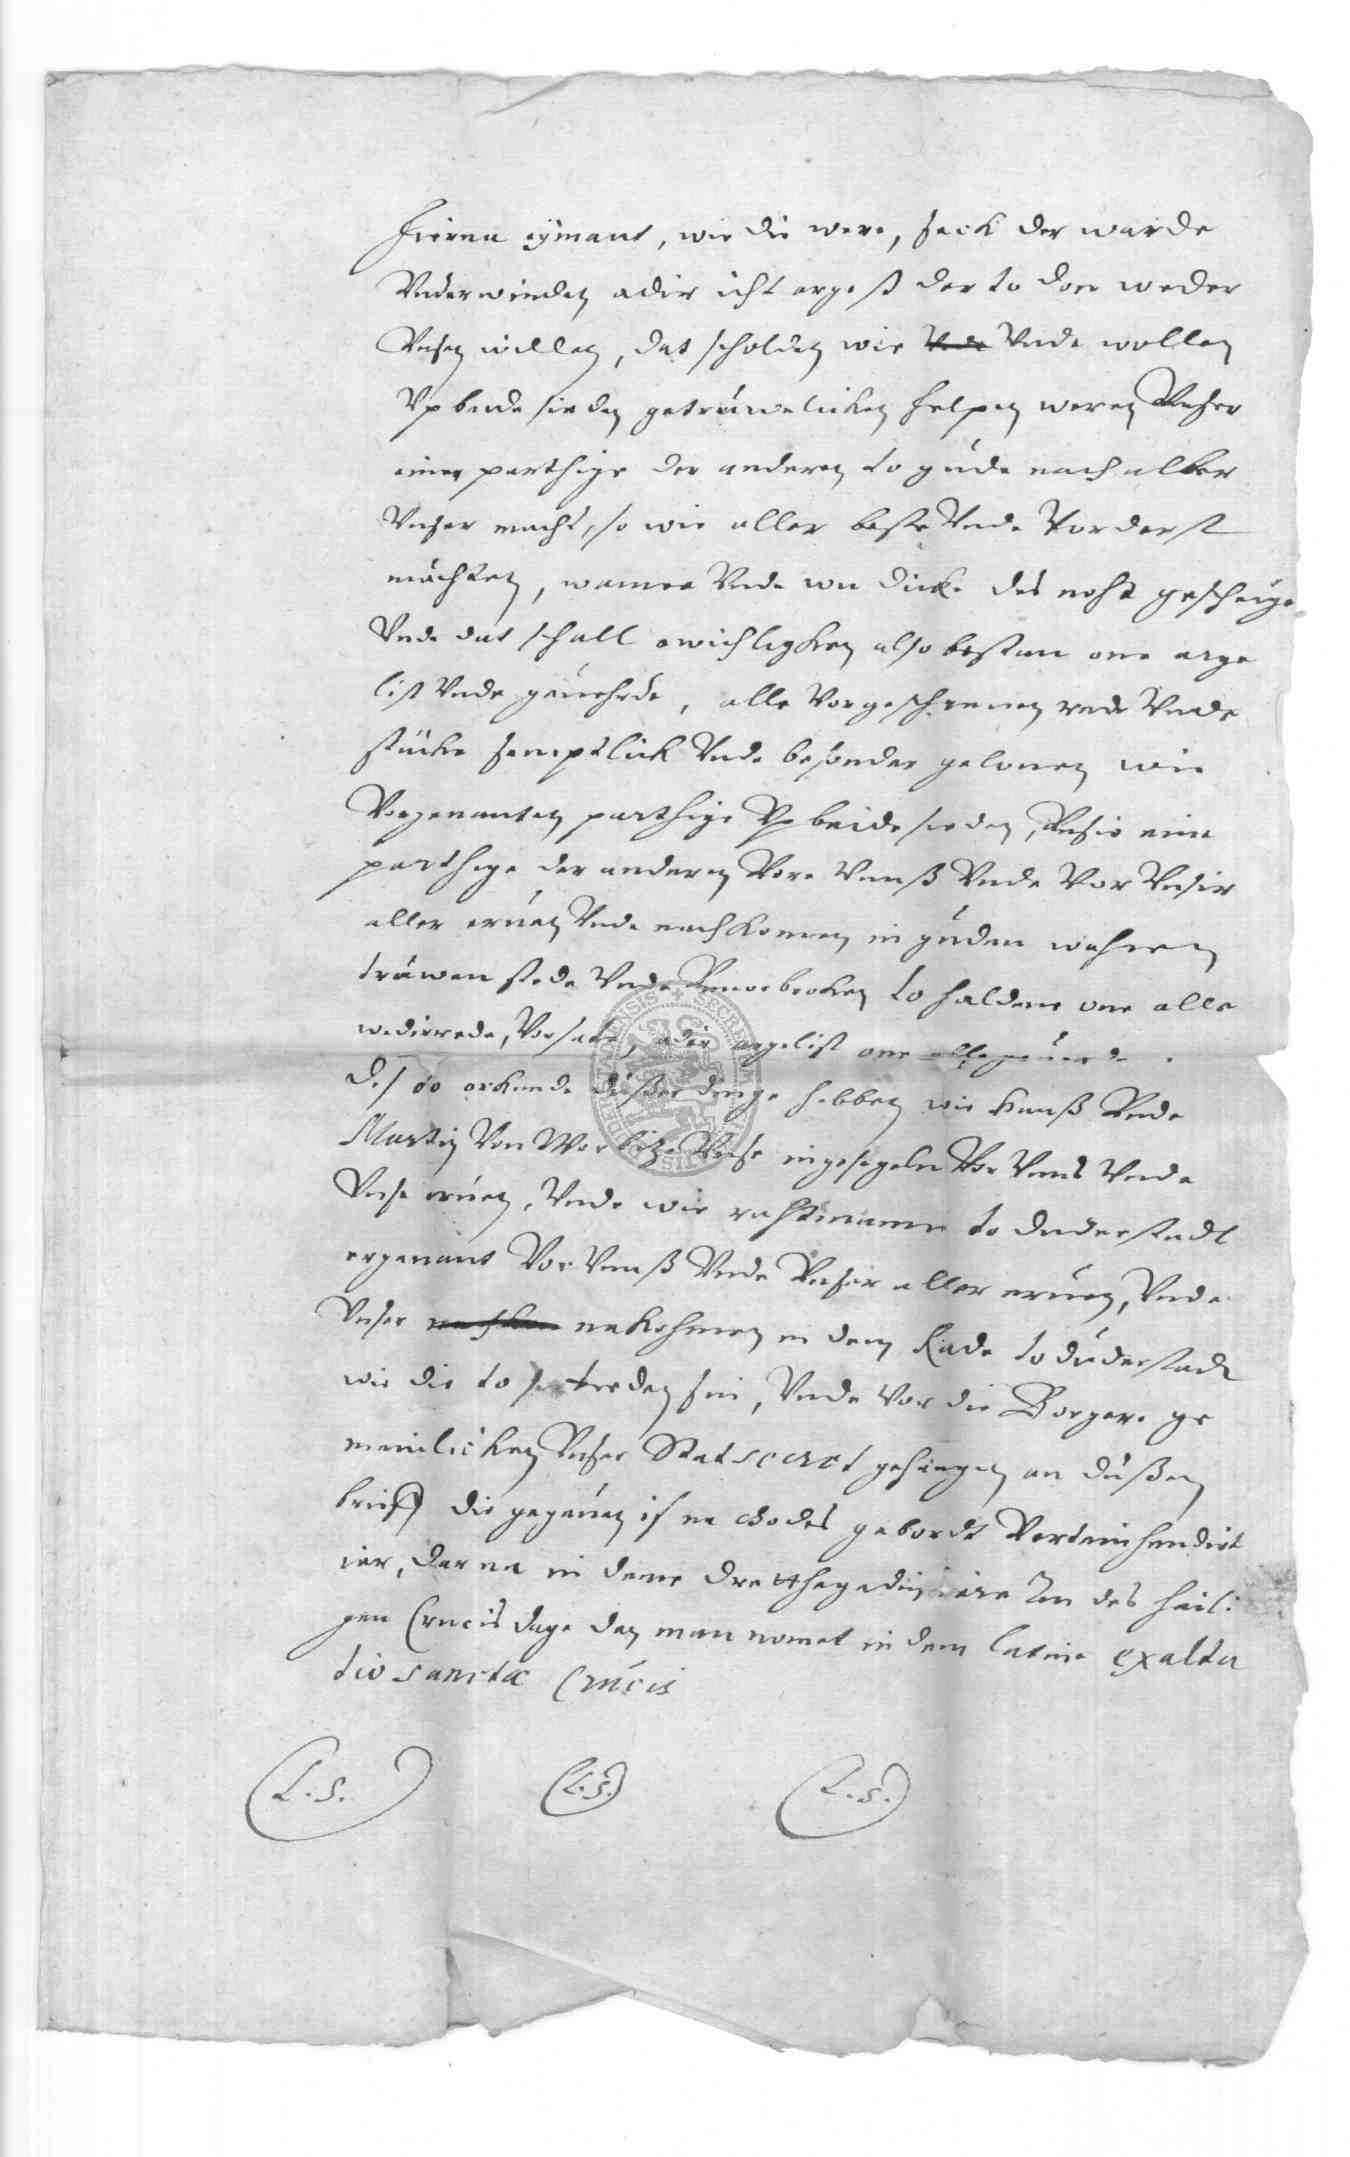 hierna iymant, wie die were, seck der warde
Underwinden adir icht argeß dar to don weder
Unsen willen, dat scholden wie Unde wollen
Up beide sieden getruwelicken helpen weren Unser
einer parthige der anderen to gude nach aller
Unser macht, so wie aller beste Unde Vorderst
mochten, wanne Unde wu dicke des noht geschege
Unde dat schall ewichlichen also bestan one arge
list Unde geuehrde, alle Vorgeschreuen rede Unde
stücke semptlick Unde besonder gelouen wie
Vorgenanten parthige Up beide sieden, Unsir eine
parthige der anderen Vore Unß Unde Vor Unsir
aller eruen Unde nachkomen in guden wahren
truwen stede Unde Unuorbroken to haldene one alle
wedirrede, Vorsate, adir argelist one alle geuerde.
Des to orkunde dußer dinge hebben wie Hanß Unde
Martin Von Worbitze Unse ingesegele Vor Uns Unde
Unse eruen, Unde wie rahtmanne to duderstadt
ergenant Vor Unß Unde Unsir aller eruen, Unde
Unser nakohmen in dem Rade to duderstadt
wie die to tieden sin, Unde Vor die Borgere ge
meinlicken Unser Stat secret gehangen an dußen
brieff die gegeuen is na Godes gebordt Verteinhundirt
iar, darna in deme dretthegeden iare An des heili
gen Crucis dage den man nomet in dem latine exalta
tio sanctæ Crucis
(L.S.) (L.S.) (L.S.)